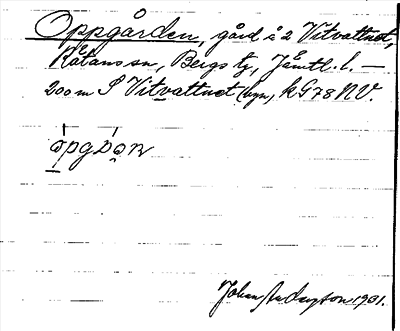 Oppgården, gård i 2 Vitvattnet,
Råtans sn, Bergs tg, Jämtl. l. —
200 m S Vitvattnet (byn, k G78 NV.
òpgɒ̀ən
Johan 1931.